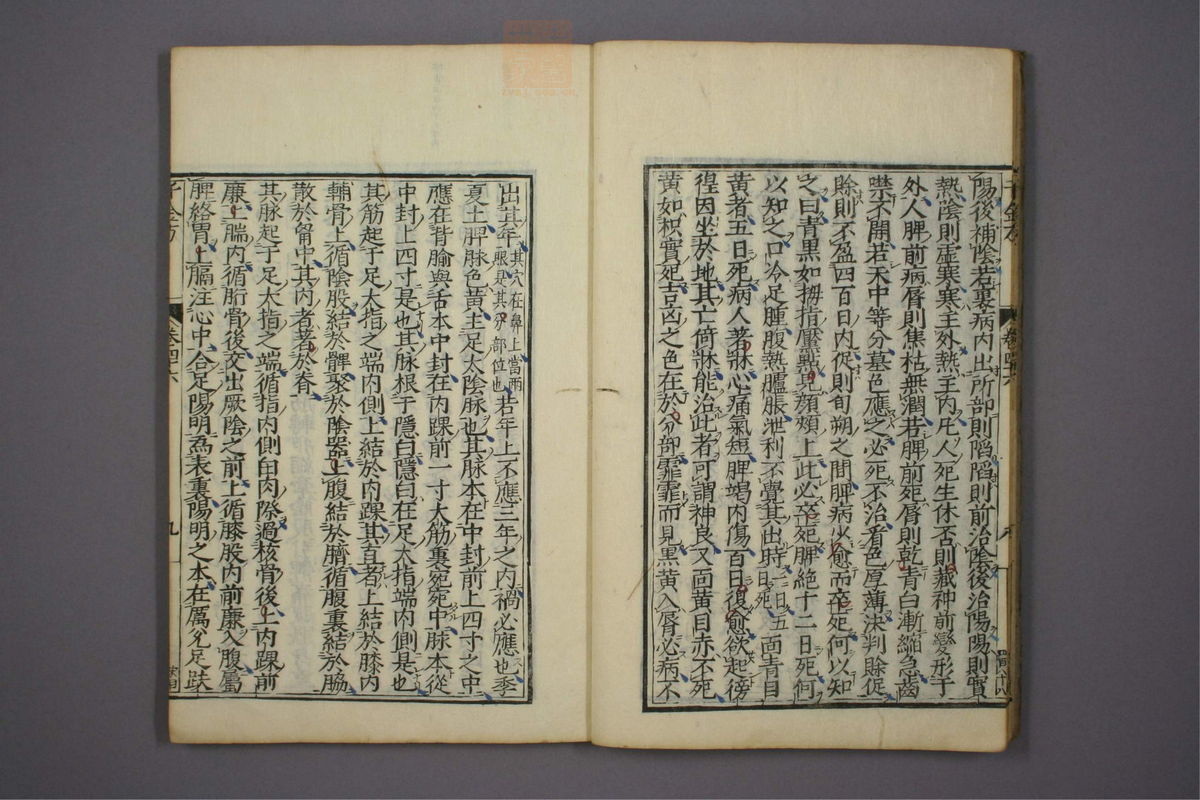 陽後補陰若裏病内出所部則陷陷則前治陰後治陽陽則實
熱陰則虛寒寒主外熱主内凡人死生休否則藏神前變形于
外人脾前病脣則焦枯無潤若脾前死脣則乾青白漸縮急齒
噤不開若天中等分墓色應之必死不治看色厚薄決判賒促
賒則不盈四百日内促則旬朔之間脾病少愈而卒死何以知
之曰青黑如拇指靨點見顏頰上此必卒死脾絕十二日死何
以知之口冷足腫腹熱臚脹泄利不覺其出時一曰五日死面青目
黃者五日死病人著牀心痛氣短脾竭内傷百日復愈欲起徬
徨因坐於地其亡倚牀能治此者可謂神良又面黃目赤不死
黃如枳實死吉凶之色在於分部霏霏而見黑黃入脣必病不
千金方
九
出其年其穴在鼻上當兩眼是其分部位也若年上不應三年之内禍必應也季
夏土脾脉色黃主足太陰脉也其脉本在中封前上四寸之中
應在背腧與舌本中封在内踝前一寸大筋裏宛宛中脉本從
中封上四寸是也其脉根于隱白隱白在足大指端内側是也
其筋起于足大指之端内側上結於内踝其直者上結於膝内
輔骨上循陰股結於髀聚於陰器上腹結於臍循腹裏結於脇
散於胷中其内者著於脊
其脉起于足大指之端循指内側白肉際過核骨後上内踝前
廉上腨内循䯒骨後交出厥陰之前上循膝股内前廉入腹屬
脾絡胃上膈注心中合足陽明為表裏陽明之本在厲兌足趺